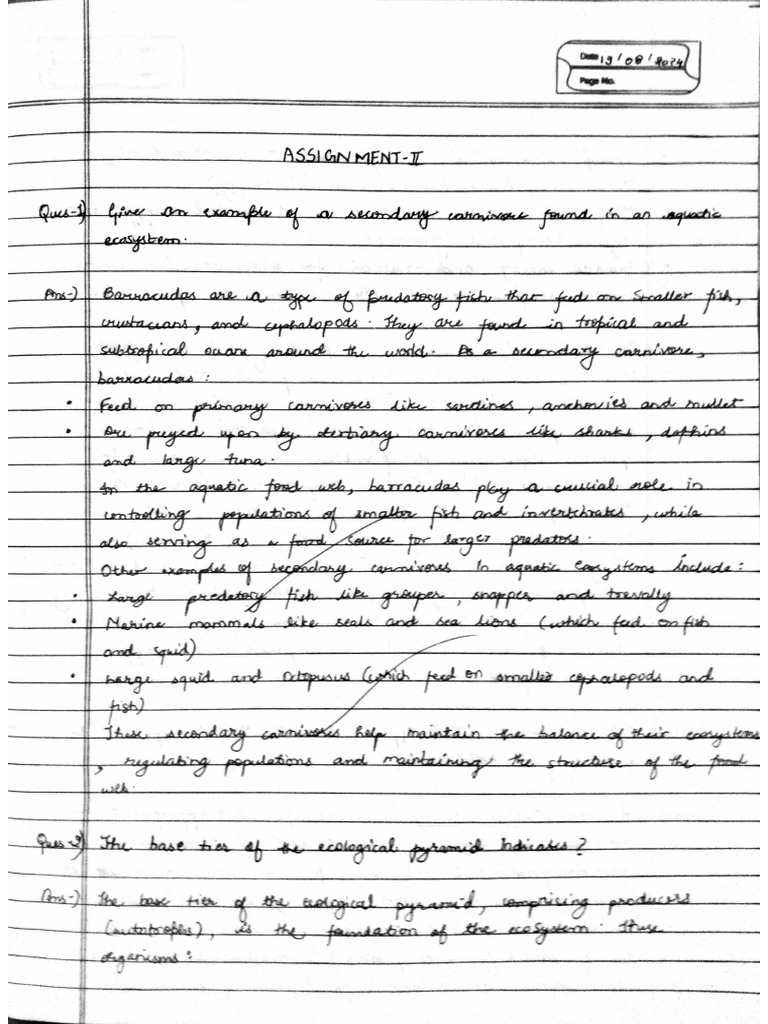 Date 19/08/2024
Page No.
ASSIGNMENT-II
Ques-1) Give an example of a secondary carnivore found in an aquatic
ecosystem.
Ans-) Barracudas are a type of predatory fish that feed on smaller fish,
crustaceans, and cephalopods. They are found in tropical and
subtropical oceans around the world. As a secondary carnivore,
barracudas:
• Feed on primary carnivores like sardines, anchovies and mullet
• Are preyed upon by tertiary carnivores like sharks, dophins
and large tuna.
In the aquatic food web, barracudas play a crucial role in
controlling populations of smaller fish and invertebrates, while
also serving as a food source for larger predators.
Other examples of secondary carnivores In aquatic ecosystems include:
• Large predatory fish like grouper, snapper and trevally
• Marine mammals like seals and sea lions (which feed on fish
and squid)
• Large squid and Octopuses (which feed on smaller cephalopods and
fish)
These secondary carnivores help maintain the balance of their ecosystems
, regulating populations and maintaining the structure of the food
web.
Ques-2) The base tier of the ecological pyramid Indicates?
Ans-) The base tier of the ecological pyramid, comprising producers
(autotrophs), is the foundation of the ecosystem. These
organisms: